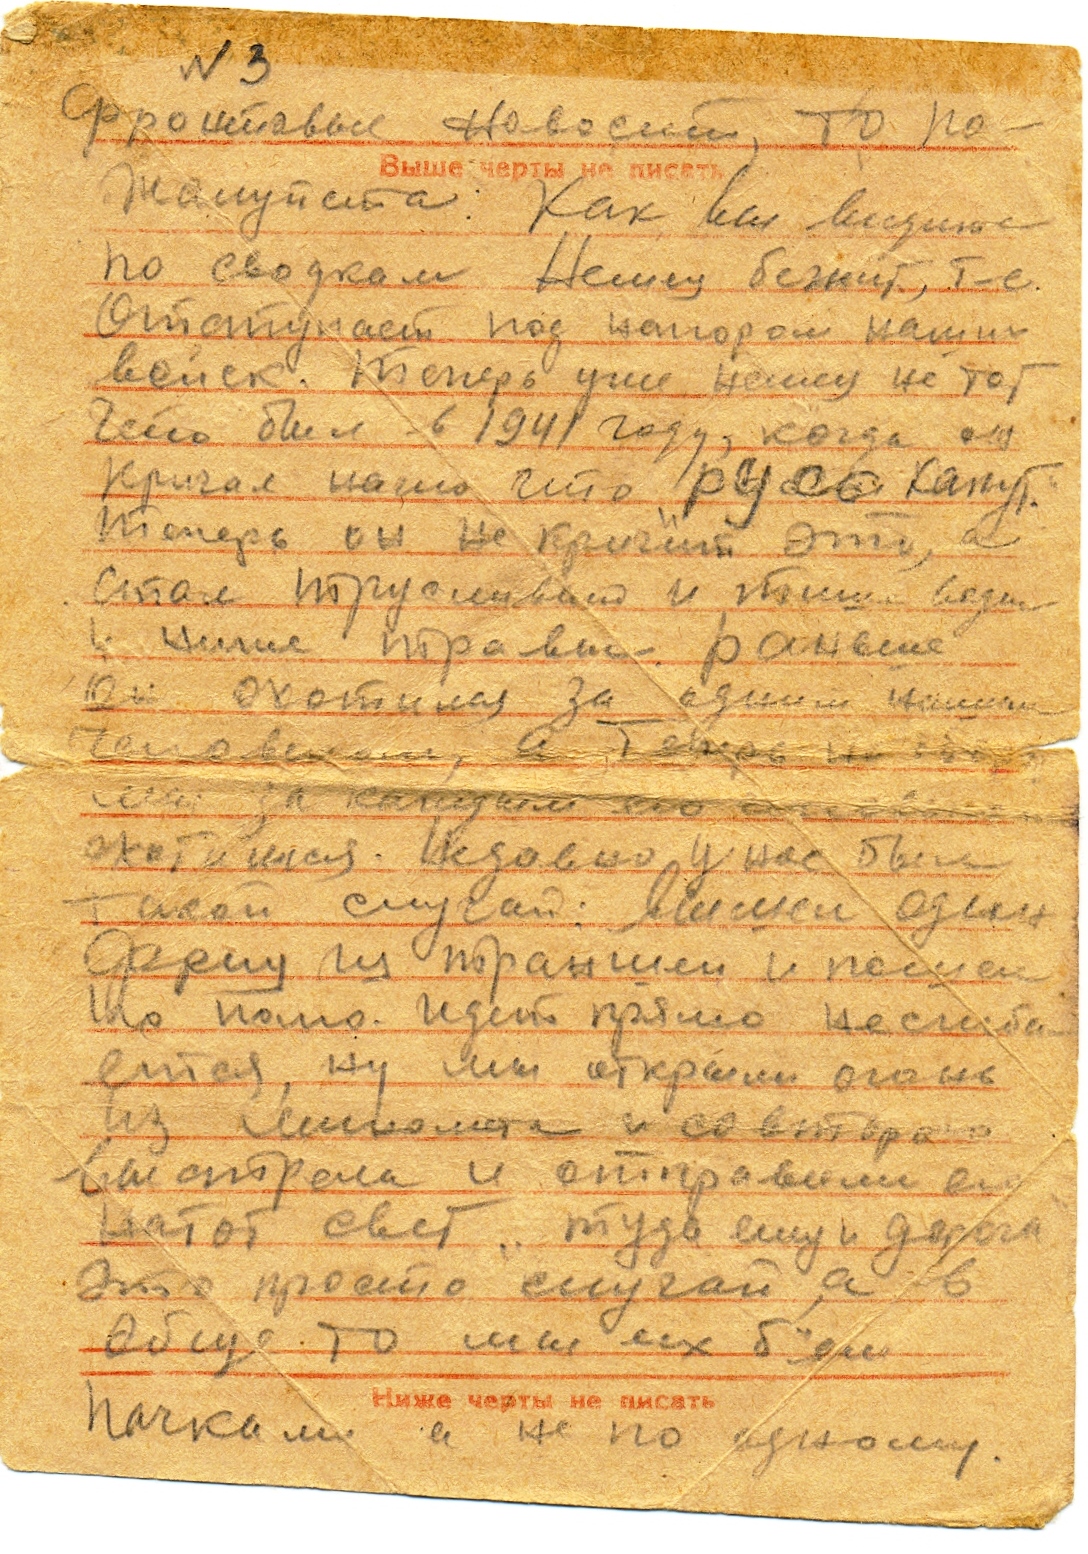 N 3
Фронтовые новости, то по-
Выше черты не писать
жалуйста. Как вы видите
по сводкам Немец бежит, т-е.
Отступает под напором наших
войск. Теперь уже немец не тот
что был в 1941 году, когда он
кричал нагло что русь капут.
Теперь он не кричит это, а
стал трусливый и тише воды
и ниже травы. Раньше
он охотился за одним нашим
человеком, а теперь
мы за каждым его
охотимся. Недавно у нас был
такой случай: вышел один
фриц из траншеи и пошел
по полю. Идет прямо не сгиба
ется, ну мы открыли огонь
из миномета и со второго
выстрела и отправили его
на тот свет „туда ему и дорога"
Это просто случай, а в
общe то мы их бъем
Ниже черты не писать
пачками а не по одному.